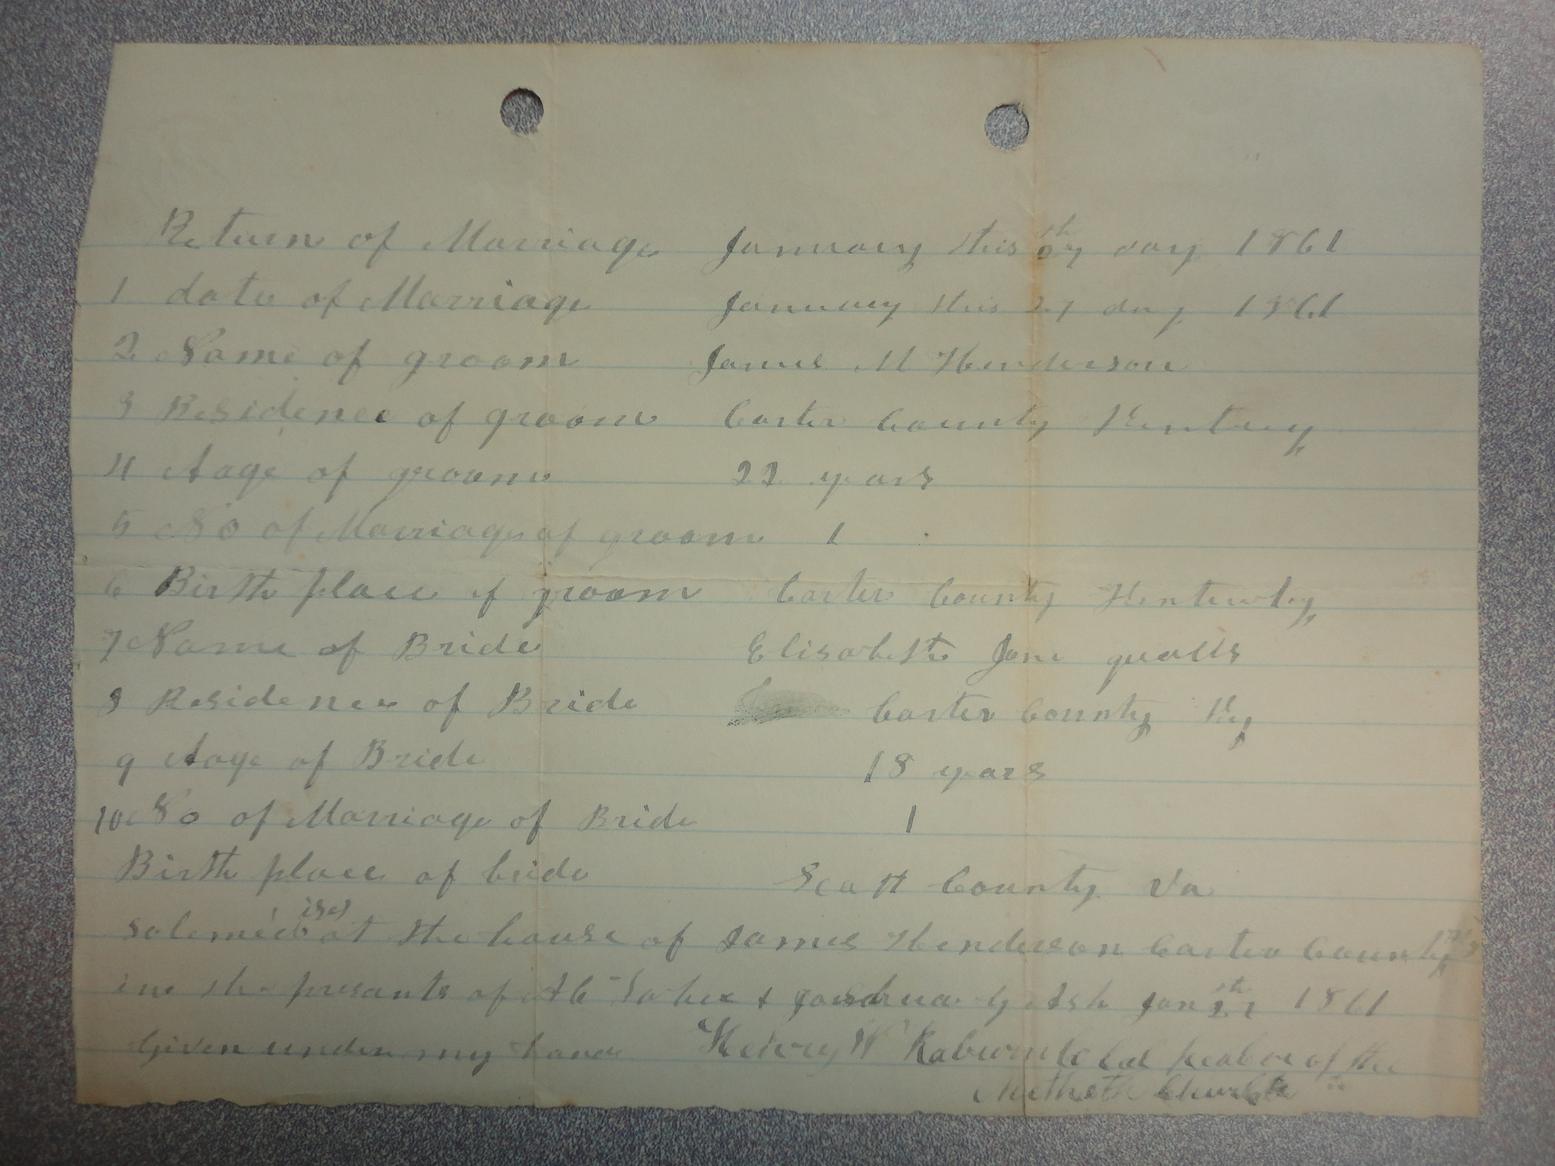 Return of Marriage January this day 1861
1 date of Marriage January this 27 day 1861
2 Name of groom James M Henderson
3 Residence of groom Carter County
4 Aage of groom 22 years
5 No of Marriage of groom 1
6 Birth place of groom Carter County
7 Name of Bride Elisabeth Jane qualls
8 Residence of Bride Carter County Ky
9 Aage of Bride 18 years
10 No of Marriage of Bride 1
Birth place of bride Scott County Va
at the house of James Henderson Carter County
in the of & Jan 1861
Given under my hand Henry W of the